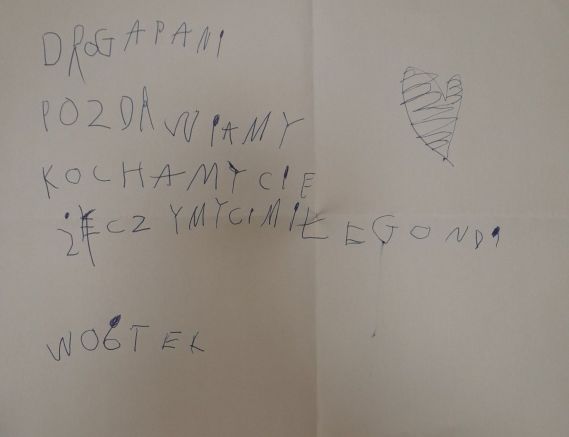 DROGAPANI
POZDAWIAMY
KOCHAMYCIE
ŻECZYMYCIMIŁEGONDI
WOGTEK